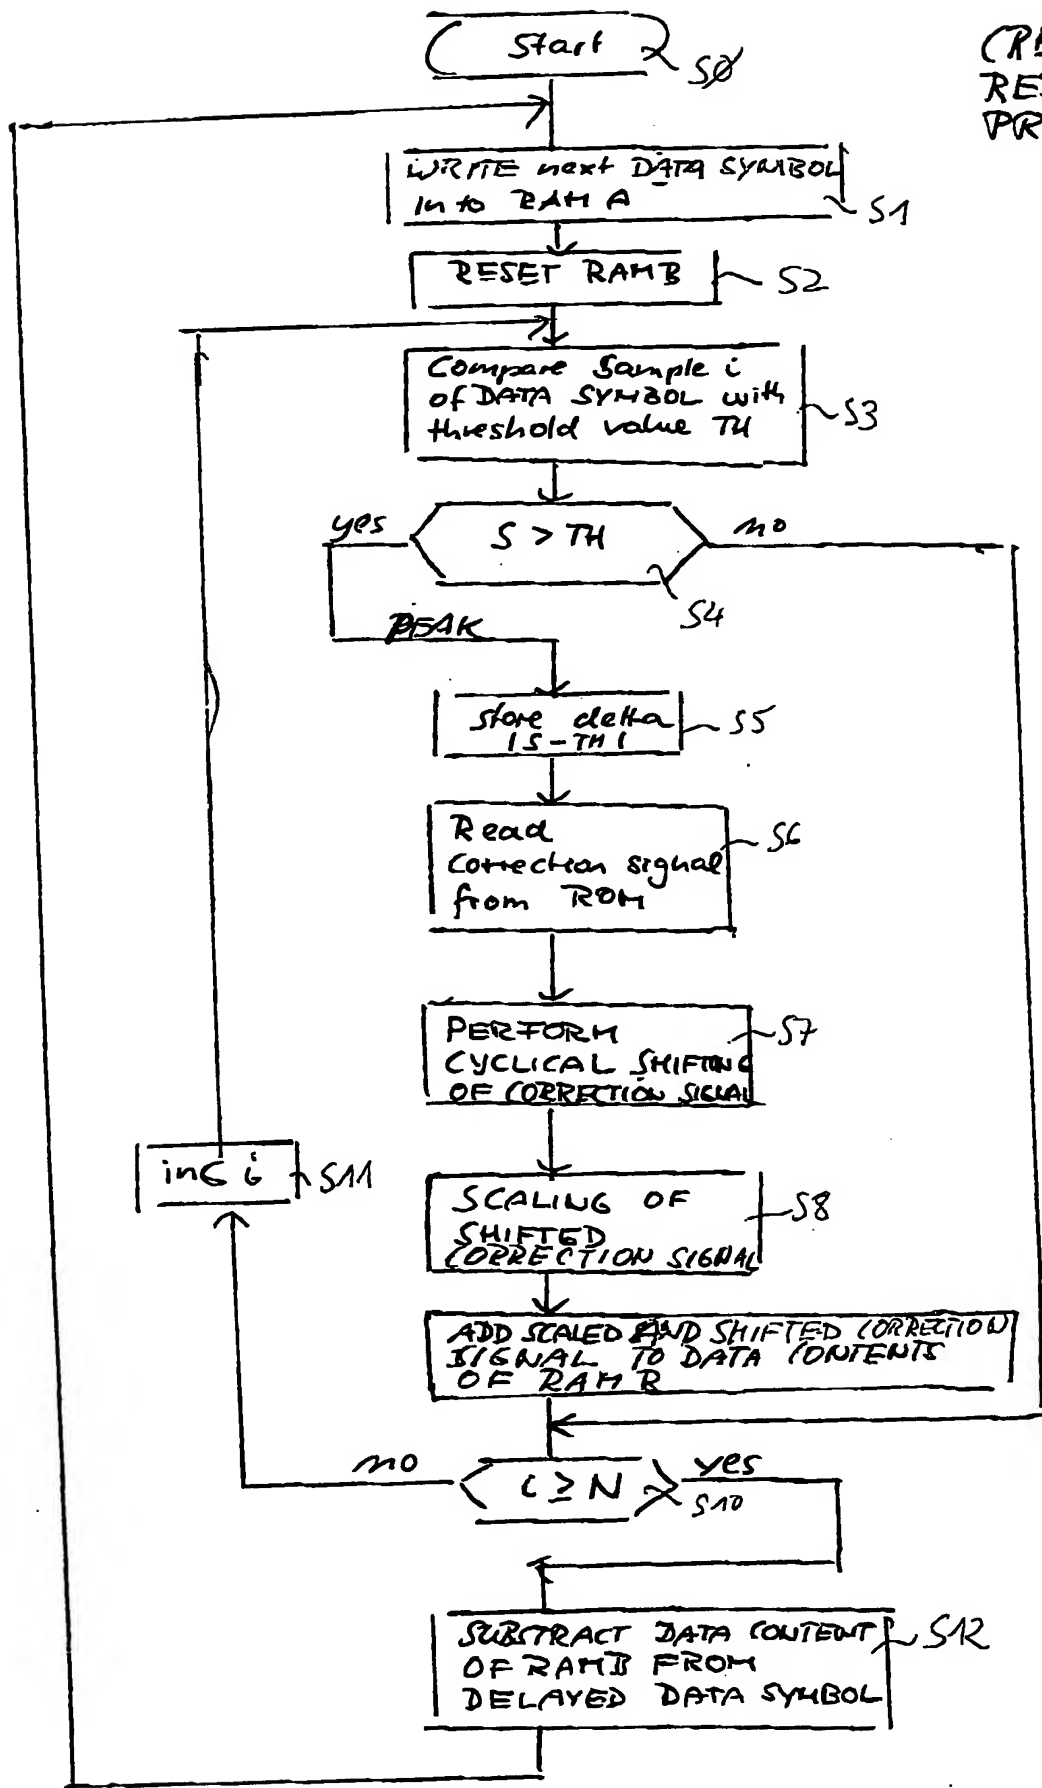 Start
SØ
(R
RE
PR
WRITE next DATA SYMBOL
in to RAM A
S1
RESET RAMB
S2
Compare Sample i
of DATA SYMBOL with
threshold value TH
S3
yes
S > TH
no
S4
PEAK
store delta
|S-TH|
S5
Read
correction signal
from ROM
S6
PERFORM
CYCLICAL SHIFTING
OF CORRECTION SIGNAL
S7
i
S11
SCALING OF
SHIFTED
CORRECTION SIGNAL
S8
ADD SCALED AND SHIFTED CORRECTION
SIGNAL TO DATA CONTENTS
OF RAM B
no
i ≥ N
yes
S10
SUBSTRACT DATA CONTENT
OF RAMB FROM
DELAYED DATA SYMBOL
S12